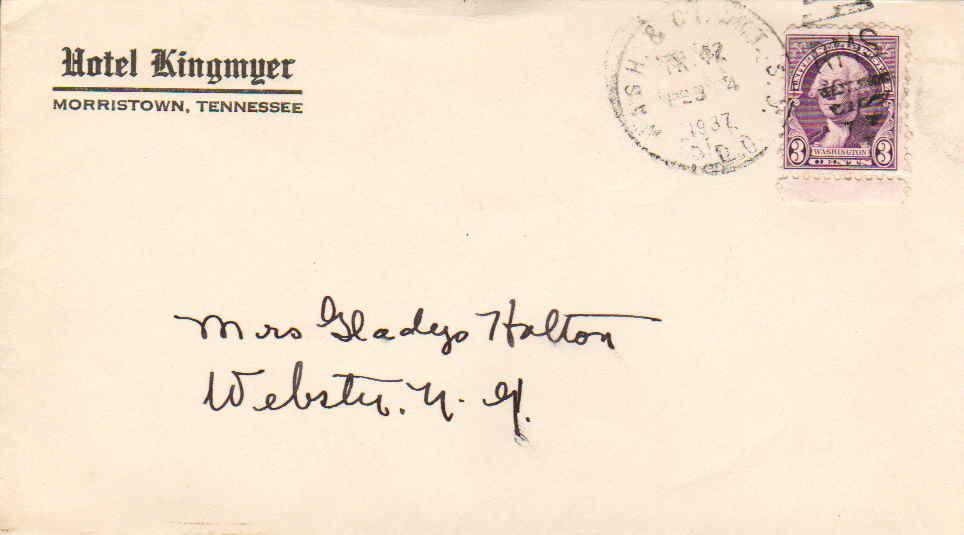 Hotel Kingmyer
MORRISTOWN, TENNESSEE
WASH. &
TR 42
1937
R.P.O.
UNITED STATES POSTAGE
3 WASHINGTON 3
CENTS
Mrs Gladys Halton
Webster, N. Y.